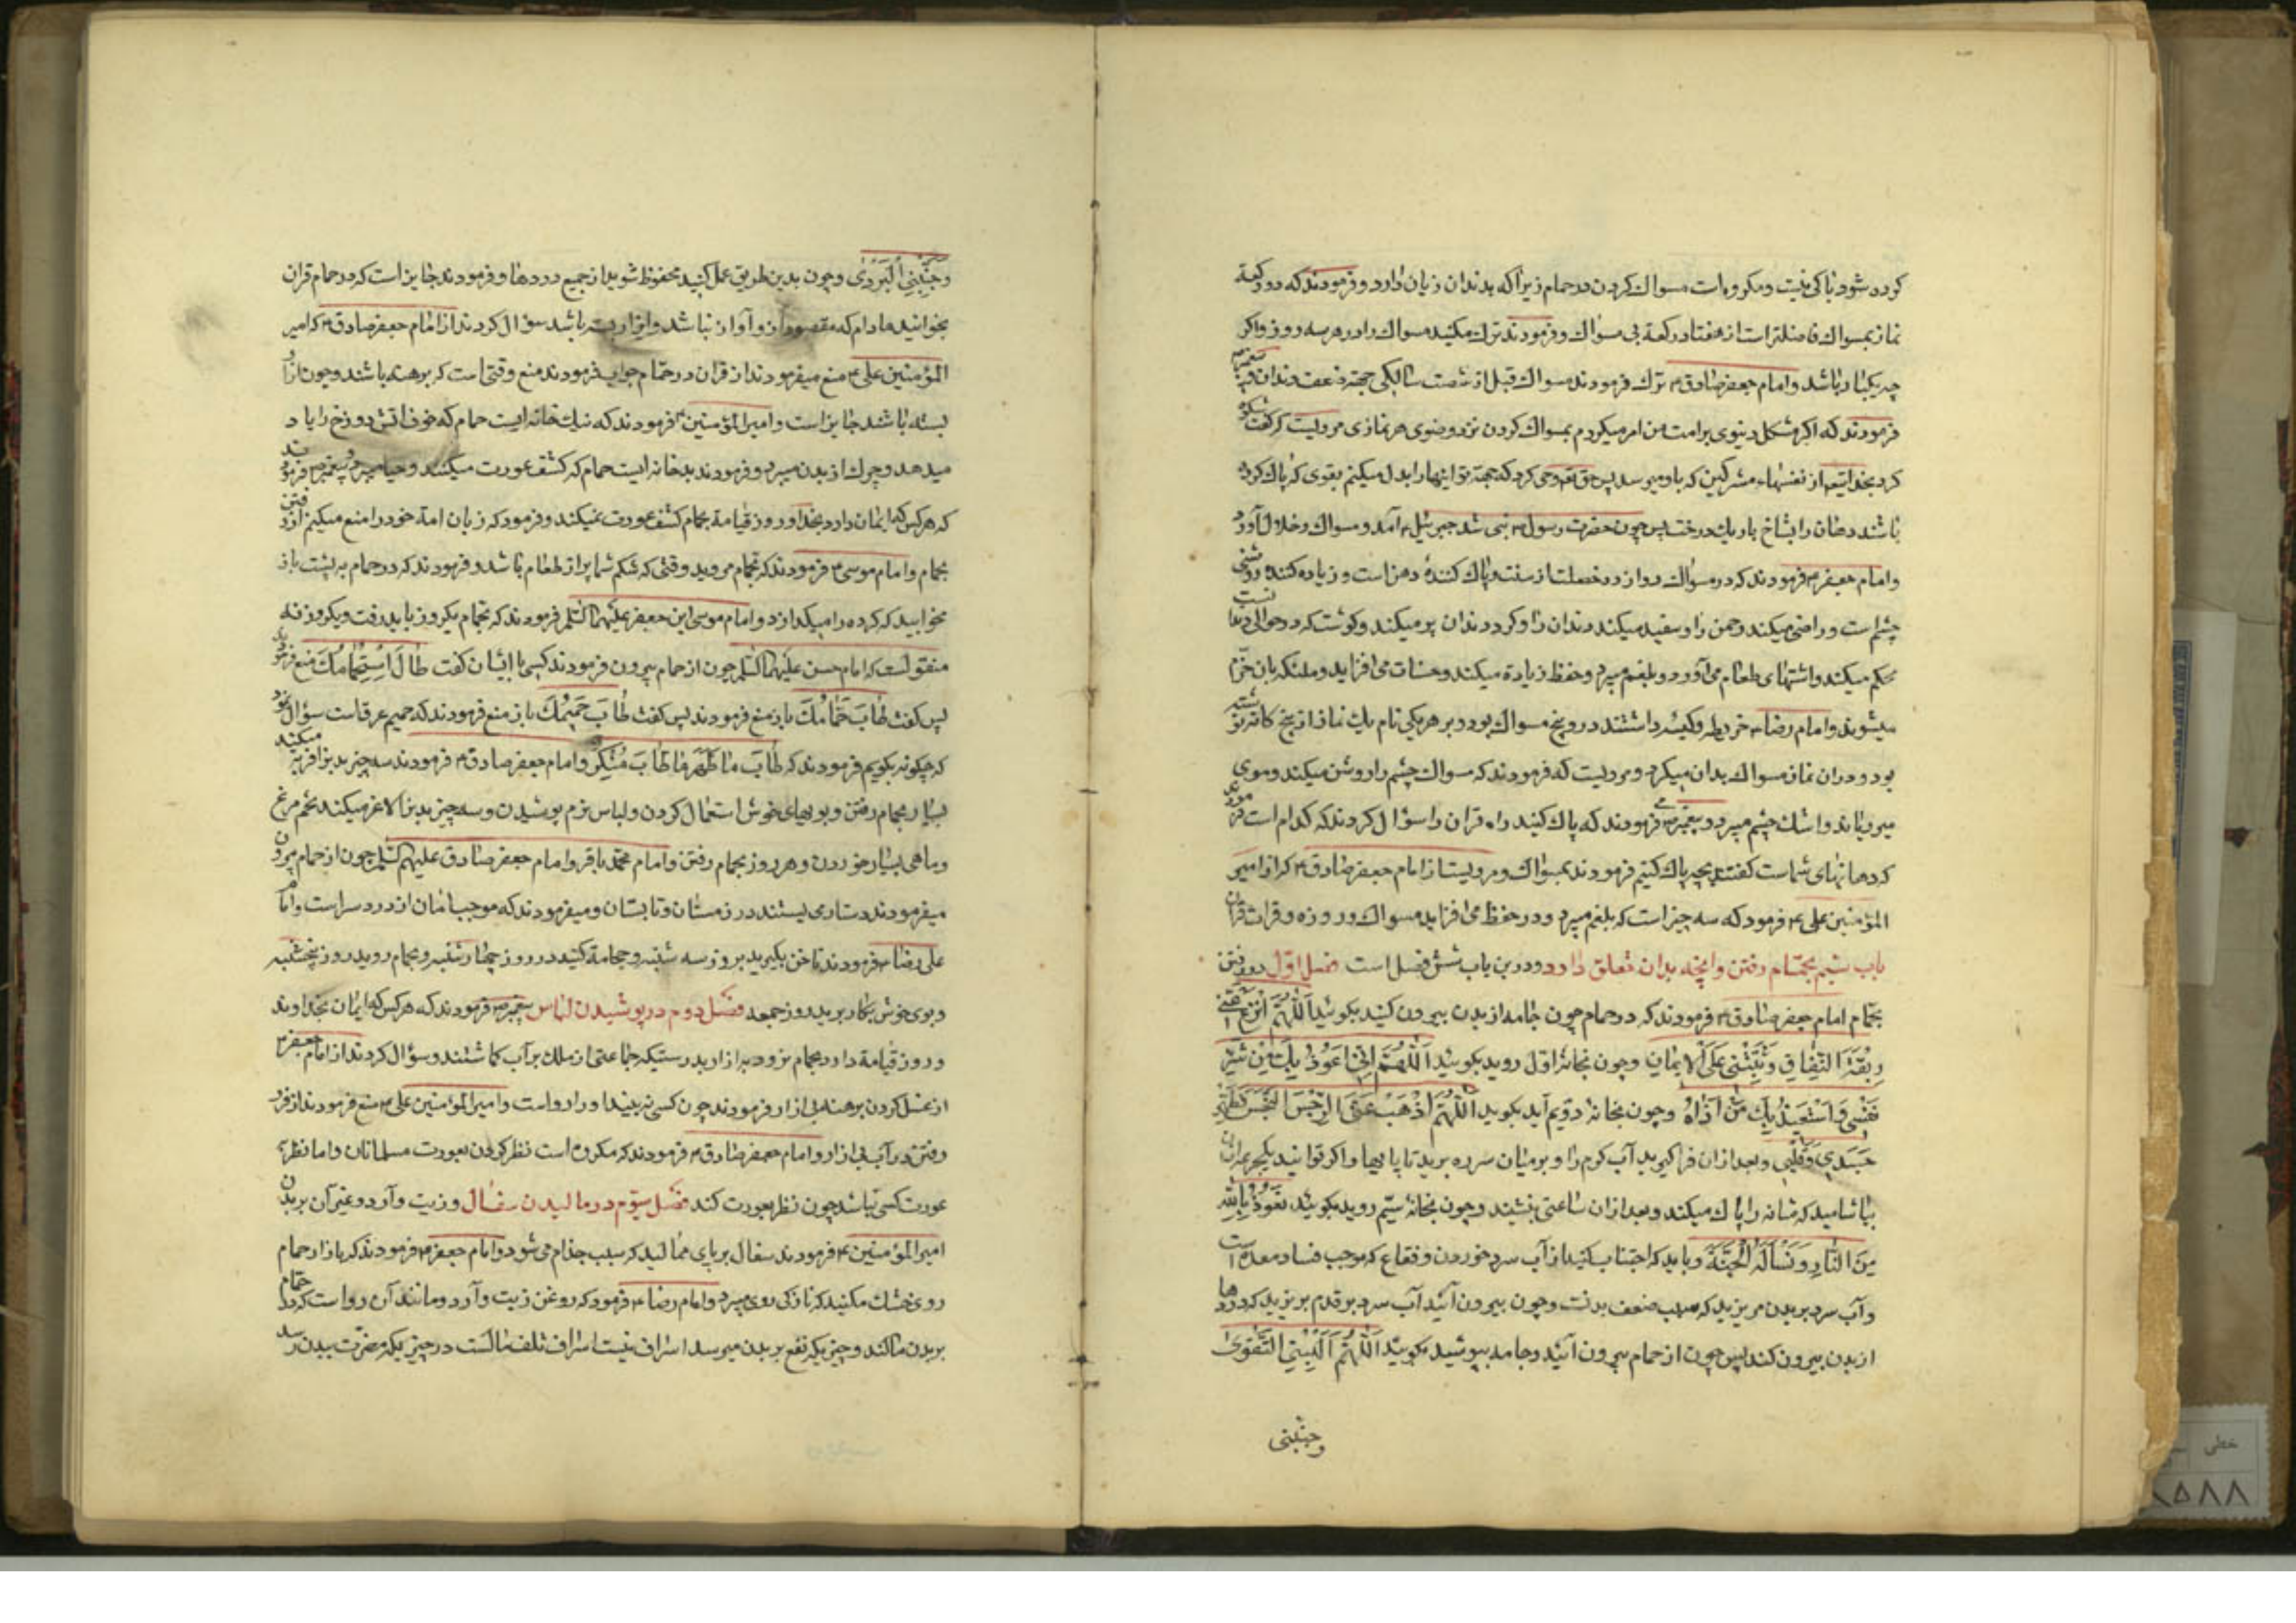 کرده شود پاکی نیست و مکروه است مسواک کردن در حمام زیرا که بدندان زیان دارد و فرمودند که دو رکعة
نماز بمسواک فاضلتر است از هفتاد رکعة بی مسواک و فرمودند ترک مکنید مسواک را در هر سه روز و اگر
چه یکبار باشد و امام جعفر صادق ترک فرمودند مسواک قبل از شصت سالکی جهة ضعف دندان و پیغمبر
فرمودند که اگر مشکل دینوی بر امت من امر میکردم بمسواک کردن نزد وضوی هر نمازی مرویست که کعبه شکوه
کرد بخدایتعالی از نفسهاء مشرکین که باو میرسد پس حق تعالی وحی کرد که جهة تو اینها را بدل میکنم بقومی که پاک کرده
باشند دهان را بشاخ باریک درخت پس چون حضرت رسول نبی شد جبرئیل آمد و مسواک و خلال آورد
و امام جعفر فرمودند که در مسواک دوازده خصلت از سنت و پاک کنندۀ دهن است و زیاده کننده روشنی
چشم است و راضی میکند رحمن را و سفید میکند دندان را و کرد دندان بر میکند و کوشت که در حوالی دندانست
محکم میکند و اشتهای طعام می آورد و بلغم میبرد و حفظ زیادة میکند و حسنات می افزاید و ملئکه بان خرّم
میشوند و امام رضا خریطه و کیسه داشتند در و پنج مسواک بود و بر هر یکی نام یک نماز از پنج کانه نوشته
بود و در آن نماز مسواک بدان میکرد و مرویست که فرمودند که مسواک چشم را روشن میکند و موی
میرویاند و اشک چشم میبرد و پیغمبر فرمودند که پاک کنید راه قران را سؤال کردند که کدام است فرمودند
که دهانهای شماست کفتند بچه پاک کنیم فرمودند بمسواک و مرویست از امام جعفر صادق که از امیر
المؤمنین علی فرمود که سه چیز است که بلغم میبرد و در حفظ می افزاید مسواک و روزه و قرائت قران
باب سیم بحمّام رفتن و انچه بدان تعلق دارد و درین باب شش فصل است فصل اوّل در رفتن
بحمّام امام جعفر صادق فرمودند که در حمام چون جامه از بدن بیرون کنید بکوئید اَللّهُمَّ انْزَعْ عَنّی
رِبْقَةَ النِّفاقِ وَثَبِّتْنی عَلَی الْایمانِ و چون بخانۀ اوّل روید بکوئید اَللّهُمَّ اِنّی اَعُوذُ بِکَ مِنْ شَرِّ
نَفْسی وَاَسْتَعیذُ بِکَ مِنْ اَذاهُ و چون بخانۀ دویم آید بکوید اَللّهُمَّ اَذْهِبْ عَنّیِ الرِّجْسَ النَّجَسَ وَطَهِّر
جَسَدی وَقَلْبی و بعد از ان فرا کیرید آب کرم را و بر میان سر ده برید تا پایها و اکر توانید یکجرعه از ان
بیاشامید که مثانه را پاک میکند و بعد از ان ساعتی بنشیند و چون بخانۀ سیّم روید بکوئید نَعُوذُ بِاللهِ
مِنَ النّارِ وَنَسْاَلُهُ الْجَنَّةَ و باید که اجتناب کنید از آب سرد خوردن و فقاع که موجب فساد معده است
و آب سرد بر بدن مریزید که سبب ضعف بدنست و چون بیرون آئید آب سرد بر قدم بریزید که دردها
از بدن بیرون کند پس چون از حمام بیرون آئید و جامه بپوشید بکوئید اَللّهُمَّ اَلْبِسْنِی التَّقْوی
وجنّبنی
وَجَنِّبْنِی الْبَرْدَی و چون بدین طریق عمل کنید محفوظ شوید از جمیع دردها و فرمودند جایز است که در حمام قران
بخوانید مادام که مقصود از و آواز نباشد و ایزار بسته باشد سؤال کردند از امام جعفر صادق که امیر
المؤمنین علی منع میفرمودند از قران در حمّام جواب فرمودند منع وقتی است که برهنه باشند و چون ازار
بسته باشند جایز است و امیرالمؤمنین فرمودند که نیک خانه ایست حمام که خوف اتش دوزخ را یاد
میدهد و چرک از بدن میبرد و فرمودند بد خانه ایست حمام که کشف عورت میکنند و حیا میبرد و پیغمبر فرمودند
که هر کس که ایمان دارد بخدا و روز قیامة بحمام کشف عورت نمیکند و فرمود که زنان امة خود را منع میکنم از رفتن
بحمام و امام موسی فرمودند که بحمام مروید وقتی که شکم شما پر از طعام باشد و فرمودند که در حمام به پشت باز
مخوابید که کرده را میکدازد و امام موسی ابن جعفر علیهما السّلم فرمودند که بحمام یکروز باید رفت و یکروز نه
منقولست که امام حسن علیهما السّلم چون از حمام بیرون فرمودند کسی با ایشان کفت طالَ اسْتِحْمامُکَ منع فرمودند
پس کفت طابَ حَمّامُکَ باز منع فرمودند پس کفت طابَ حَمیمُکَ باز منع فرمودند که حمیم عرقست سؤال نمود
که چکونه بکویم فرمودند که طابَ ما طَهُرَ فَاطابَ مِنْکُمْ و امام جعفر صادق فرمودند سه چیز بدنرا فربه میکند
بسیار بحمام رفتن و بویهای خوش استعمال کردن و لباس نرم پوشیدن و سه چیز بدنرا لاغر میکند تخم مرغ
و ماهی بسیار خوردن و هر روز بحمام رفتن و امام محمّد باقر و امام جعفر صادق علیهم السّلم چون از حمام بیرون
میفرمودند دستار می بستند در زمستان و تابستان و میفرمودند که موجب امان از درد سر است و امام
علی رضا فرمودند ناخن بکیرید بروز سه شنبه و حجامة کنید در روز چهار شنبه و بحمام روید روز پنجشنبه
و بوی خوش بکار برید روز جمعه فصل دوم در پوشیدن لباس پیغمبر فرمودند که هر کس که ایمان بخداوند
و روز قیامة دارد بحمام نرود بی ازار بدرستیکه جماعتی از ملک بر آب کماشتند و سؤال کردند از امام جعفر
از غسل کردن برهنه بی ازار فرمودند چون کسی نبیند او را رواست و امیرالمؤمنین علی منع فرمودند از فرو
رفتن در آب بی ازار و امام جعفر صادق فرمودند که مکروه است نظر کردن بعورت مسلمانان و اما نظر
عورت کسی نباشد چون نظر بعورت کند فصل سیّوم در مالیدن سفال و زیت و آرد و غیر آن بر بدن
امیرالمؤمنین فرمودند سفال بر پای ممالید که سبب جذام می شود و امام جعفر فرمودند که با ازار حمام
روی خشک مکنید که نازکی روی میبرد و امام رضا فرمود که روغن زیت و آرد و مانند آن رواست که در حمّام
بر بدن مالند و چیزیکه نفع بر بدن میرسد اسراف نیست اسراف تلف مالست در چیزیکه مضرّت ببدن رسد
خطی
۸۵۸۸